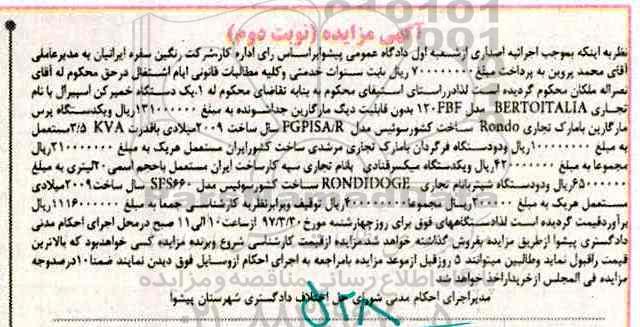 آگهی مزایده (نوبت دوم)
نظر به اینکه بموجب اجرائیه اصداری ازشعبه اول دادگاه عمومی پیشوابراساس رای اداره کار،شرکت رنگین سفره ایرانیان به مدیرعاملی
آقای محمد پروین به پرداخت مبلغ ۷۰۰۰۰۰۰۰۰ ریال بابت سنوات خدمتی وکلیه مطالبات قانونی ایام اشتغال درحق محکوم له آقای
نصراله ملکان محکوم گردیده است لذادرراستای استیفای محکوم به بنابه تقاضای محکوم له ۱.یک دستگاه خمیرکن اسپیرال با نام
تجاری BERTOITALIA مدل ۱۲۰FBF بدون قابلیت دیگ مارگارین جداشونده به مبلغ ۱۳۱۰۰۰۰۰۰ ریال ویکدستگاه پرس
مارگارین بامارک تجاری Rondo ساخت کشورسوئیس مدل FGPISA/R سال ساخت ۲۰۰۹میلادی باقدرت ۲/۵ KVA مستعمل
به مبلغ ریال ودودستگاه فرگردان بامارک تجاری مرشدی ساخت کشورایران مستعمل هریک به مبلغ ۲۱۰۰۰۰۰۰۰ریال
مجموعا به مبلغ ۴۲۰۰۰۰۰۰۰ریال ویکدستگاه میکسرقنادی بانام تجاری سپه کارساخت ایران مستعمل باحجم اسمی ۲۰لیتری به مبلغ
۶۵۰۰۰۰۰۰ریال ودودستگاه شیتربانام تجاری RONDIDOGE ساخت کشورسوئیس مدل SFS۶۶۰ سال ساخت ۲۰۰۹میلادی
مستعمل هریک به مبلغ ریال مجموعا ریال توقیف وبرابرنظریه کارشناسی جمعا به مبلغ ۱۱۱۶۰۰۰۰۰۰ ریال
برآوردقیمت گردیده است لذادستگاههای فوق برای روزچهارشنبه مورخ ۹۷/۳/۳۰ ازساعت ۱۰الی ۱۱ صبح درمحل اجرای احکام مدنی
دادگستری پیشوا ازطریق مزایده بفروش گذاشته خواهد شد.مزایده ازقیمت کارشناسی شروع وبرنده مزایده کسی خواهدبود که بالاترین
قیمت راقبول نماید وطالبین میتوانند ۵ روزقبل ازموعد مزایده بامراجعه به اجرای احکام ازوسایل فوق دیدن نمایند ضمنا۱۰درصدوجه
مزایده فی المجلس ازخریداراخذ خواهد شد
مدیراجرای احکام مدنی شورای حل اختلاف دادگستری شهرستان پیشوا